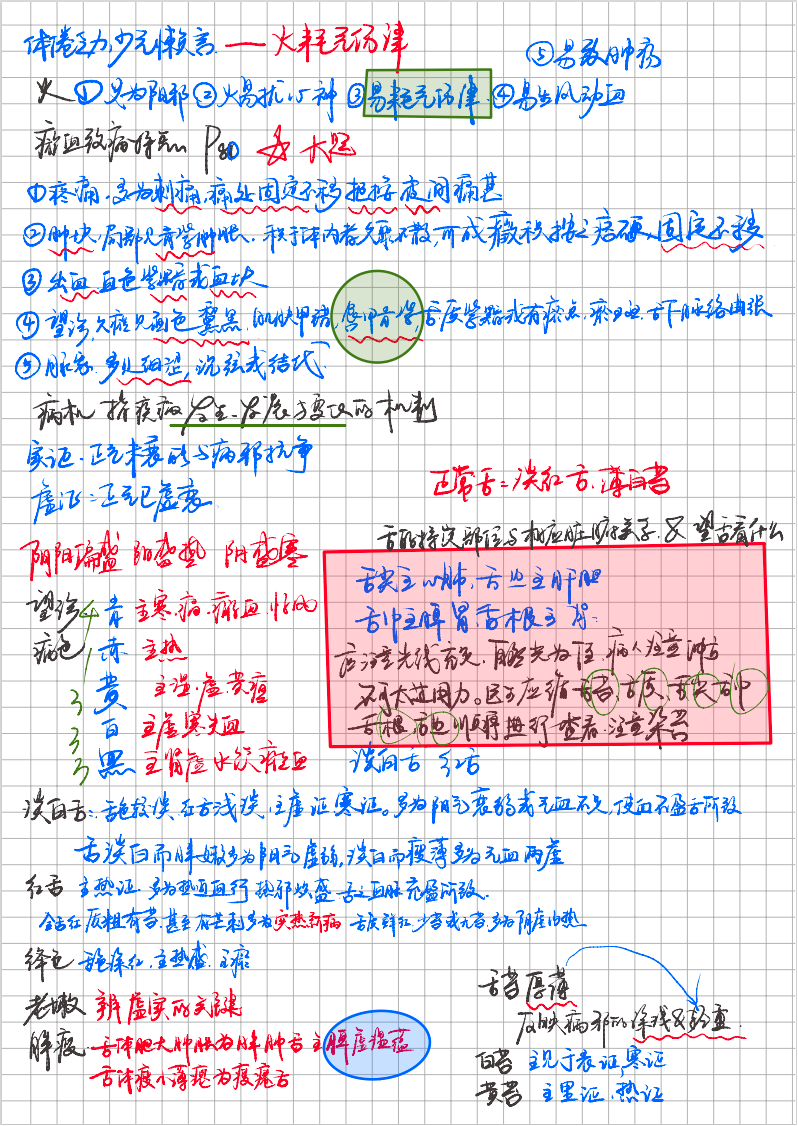 体倦乏力,少气懒言 —— 火耗气伤津
⑤易致肿疡
火 ①火为阳邪 ②火易扰心神 ③易耗气伤津 ④易生风动血
瘀血致病特点 P80 大题
①疼痛,多为刺痛,痛处固定不移 拒按 夜间痛甚
②肿块,局部见青紫肿胀,积于体内者久聚不散,而成癥积 按之痞硬、固定不移
③出血,血色紫暗或血块
④望诊,久瘀见面色黧黑,肌肤甲错,唇甲青紫,舌质紫暗或有瘀点,瘀斑,舌下脉络曲张
⑤脉象,多见细涩,沉弦或结代
病机 指疾病发生、发展与变化的机制
实证:正气未衰 能与病邪抗争
虚证:正气已虚衰
正常舌:淡红舌、薄白苔
舌的特定部位与相应脏腑关系 & 望舌看什么
阴阳偏盛 阳盛热 阴盛寒
舌尖主心肺,舌边主肝胆
舌中主脾胃,舌根主肾.
望诊 青 主寒、痛、瘀血、惊风
病色 赤 主热
黄 主湿、虚、黄疸
白 主虚寒失血
黑 主肾虚水饮瘀血
应注意光线充足,自然光为佳 病人注意伸舌
不可太过用力。医子应循 舌苔 舌质、舌尖 舌中
舌根 舌边 顺序进行查看,注意染苔
淡白舌 红舌
淡白舌:舌色较淡,红少浅淡,主虚证寒证。多为阳气衰弱或气血不足,使血不盈舌所致
舌淡白而胖嫩多为阳气虚弱,淡白而瘦薄多为气血两虚
红舌 主热证 多为热迫血行 热邪炽盛 舌之血脉充盈所致.
全舌红 质粗有苔,甚至有芒刺多为实热新病 舌质鲜红,少苔或无苔,多为阴虚内热
绛色 舌色深红,主热盛.主瘀
老嫩 辨虚实的关键
胖瘦 舌体肥大肿胀为胖肿舌 主脾虚湿蕴
舌体瘦小薄瘪为瘦瘪舌
舌苔厚薄
反映病邪的深浅&轻重.
白苔 主见于表证,寒证
黄苔 主里证,热证